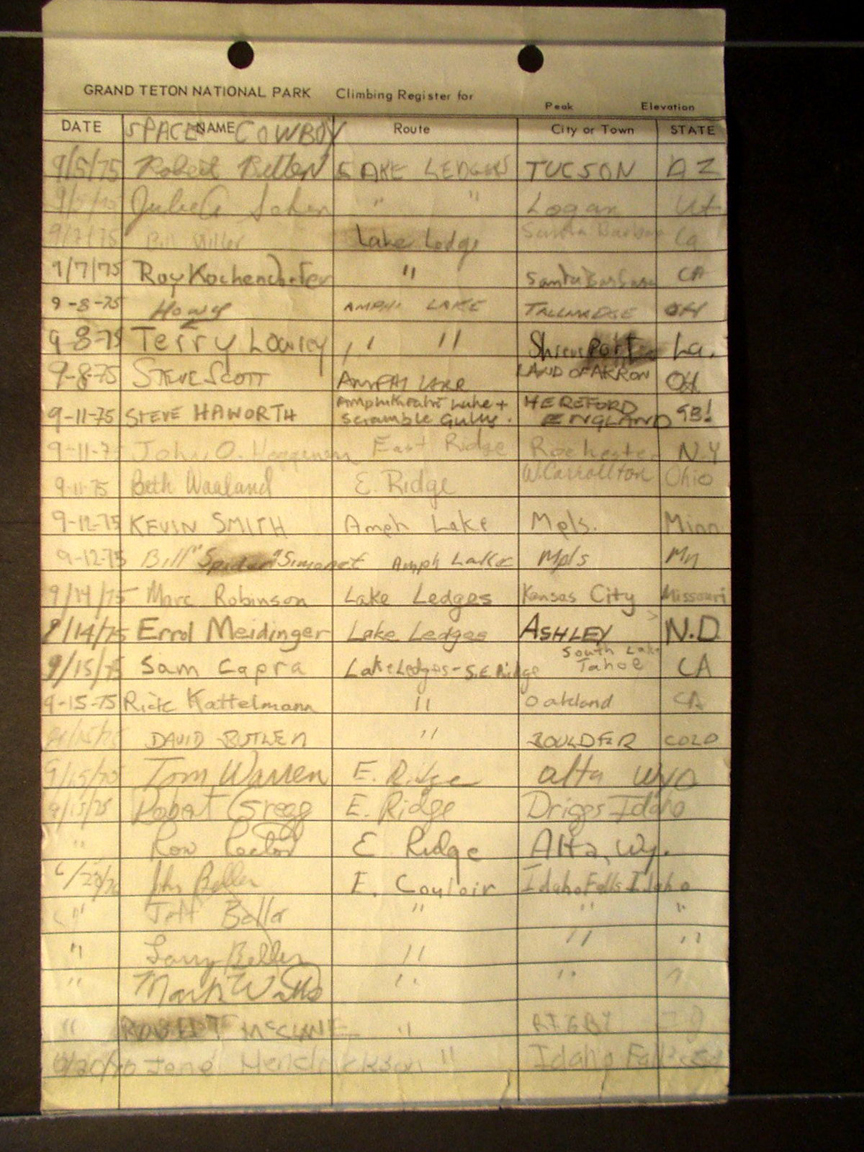 GRAND TETON NATIONAL PARK Climbing Register for Peak Elevation
DATE NAME Route City or Town STATE
SPACE COWBOY
9/5/75 Robert LAKE LEDGES TUCSON AZ
Julie A " " Logan Ut
9/7/75 Bill Miller Lake Ledge Santa Barbara Ca
9/7/75 Roy Kochendorfer " Santa Barbara CA
9-8-75 Howy AMPHI LAKE TALLMADGE OH
9-8-75 Terry Lowrey " " Shreveport La.
9-8-75 STEVE SCOTT AMPHI LAKE LAND OF AKRON OH
9-11-75 STEVE HAWORTH Amphitheatre Lake + Scramble Gully. HEREFORD ENGLAND GB!
9-11-75 John O. East Ridge Rochester N.Y
9-11-75 Beth Waaland E. Ridge W. Carrollton Ohio
9-12-75 KEVIN SMITH Amph Lake Mpls. Minn
9-12-75 Bill "Spider" Simonet Amph Lake Mpls Mn
9/14/75 Marc Robinson Lake Ledges Kansas City Missouri
9/14/75 Errol Meidinger Lake Ledges ASHLEY N.D.
9/15/75 Sam Capra Lake Ledges - S.E. Ridge South Lake Tahoe CA
9-15-75 Rick Kattelmann " Oakland CA
DAVID BUTLER " BOULDER COLO
9/15/75 Tom Warren E. Ridge alta wyo
9/15/75 Robert Gregg E. Ridge Driggs Idaho
" Ron E Ridge Alta, Wy.
John Beller E. Couloir Idaho Falls Idaho
" Jeff Beller " " "
" Larry Beller " " "
" Mark " " "
" ROBERT " RIGBY
Jane Hendrickson " Idaho Falls